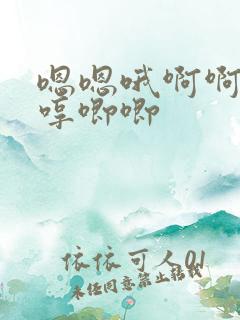 嗯嗯哦啊啊
哼唧唧
依依可人01
未经同意禁止转载